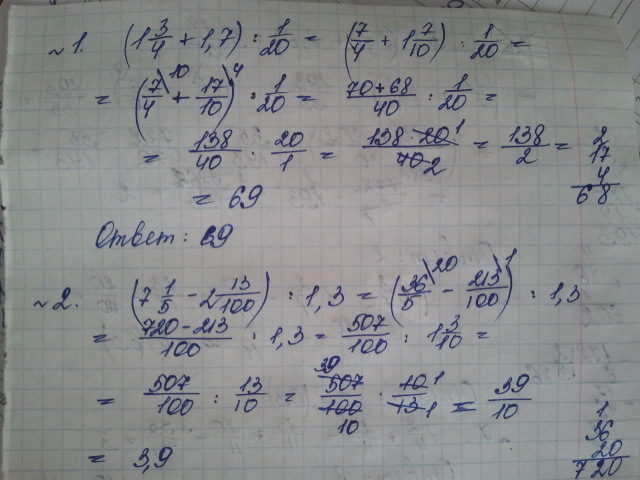 №1. (1 3/4 + 1,7) : 1/20 = (7/4 + 1 7/10) : 1/20 =
= (7/4 \10 + 17/10 \4) : 1/20 = 70+68/40 : 1/20 =
= 138/40 : 20/1 = 138 · 20 1/40 2 = 138/2 =
= 69
2
17
4
68
Ответ: 69
№2. (7 1/5 - 2 13/100) : 1,3 = (36/5 \20 - 213/100 \1) : 1,3
= 720-213/100 : 1,3 = 507/100 : 1 3/10 =
= 507/100 : 13/10 = 39 507/100 10 · 10 1/13 1 = 39/10
= 3,9
1
36
20
720